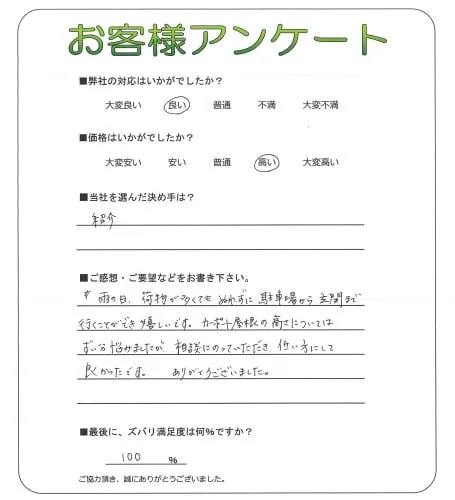 お客様アンケート
■弊社の対応はいかがでしたか?
大変良い 良い 普通 不満 大変不満
■価格はいかがでしたか?
大変安い 安い 普通 高い 大変高い
■当社を選んだ決め手は?
紹介
■ご感想・ご要望などをお書き下さい。
雨の日、荷物が多くても ぬれずに 駐車場から 玄関まで
行くことができ嬉しいです。カーポート屋根の高さについては
ずい分悩みましたが、相談にのっていただき、低い方にして
良かったです。 ありがとうございました。
■最後に、ズバリ満足度は何%ですか?
100 %
ご協力頂き、誠にありがとうございました。